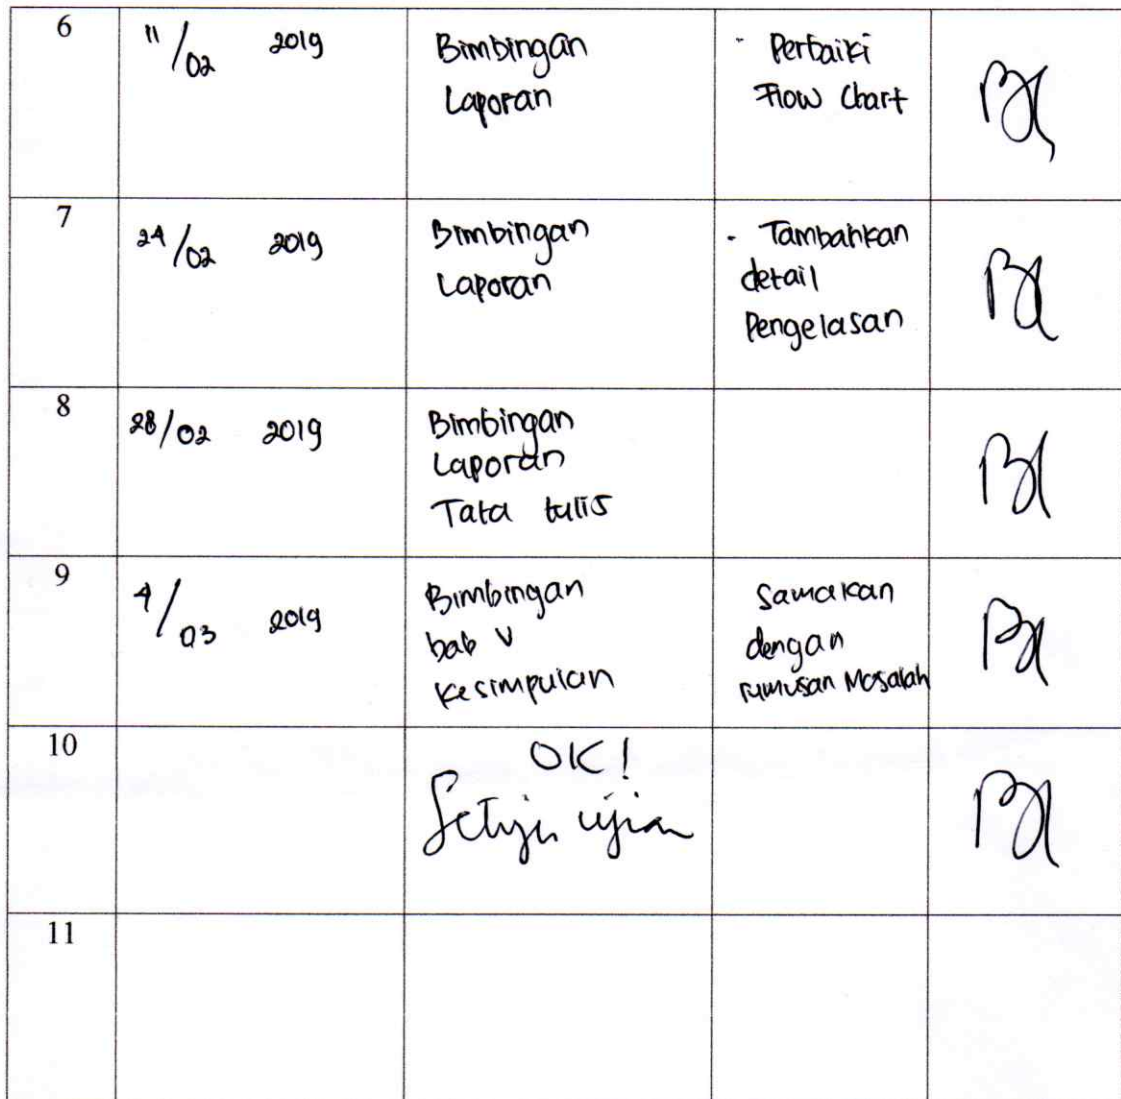 6
11/02 2019
Bimbingan
Laporan
- Perbaiki
Flow Chart
7
24/02 2019
Bimbingan
Laporan
- Tambahkan
detail
Pengelasan
8
28/02 2019
Bimbingan
Laporan
Tata tulis
9
4/03 2019
Bimbingan
bab V
Kesimpulan
Samakan
dengan
rumusan Masalah
10
OK!
Setuju ujian
11